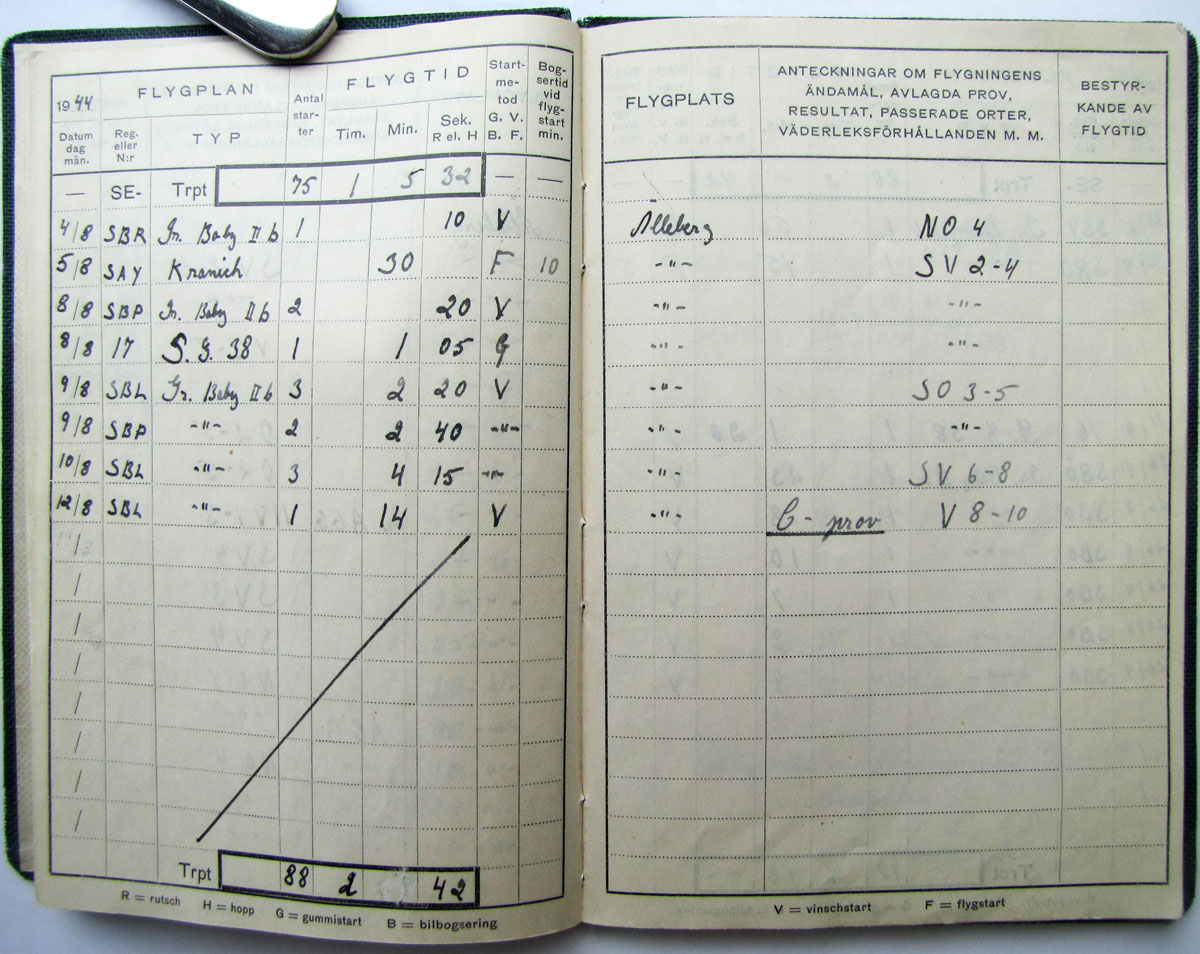 1944 FLYGPLAN Antal star- ter FLYGTID Start- me- tod G. V. B. F. Bog- sertid vid flyg- start min.
Datum dag mån. Reg. eller N:r TYP Tim. Min. Sek. R el. H
— SE- Trpt 75 1 5 32 — —
4/8 SBR Gr. Baby II b 1 10 V
5/8 SAY Kranich 30 F 10
8/8 SBP Gr. Baby II b 2 20 V
8/8 17 S. G. 38 1 1 05 G
9/8 SBL Gr. Baby II b 3 2 20 V
9/8 SBP -"- 2 2 40 -"-
10/8 SBL -"- 3 4 15 -"-
12/8 SBL -"- 1 14 V
Trpt 88 2 42
R = rutsch H = hopp G = gummistart B = bilbogsering
FLYGPLATS ANTECKNINGAR OM FLYGNINGENS ÄNDAMÅL, AVLAGDA PROV, RESULTAT, PASSERADE ORTER, VÄDERLEKSFÖRHÅLLANDEN M. M. BESTYR- KANDE AV FLYGTID
Alleberg NO 4
-"- SV 2-4
-"- -"-
-"- -"-
-"- SO 3-5
-"- -"-
-"- SV 6-8
-"- C-prov V 8-10
V = vinschstart F = flygstart